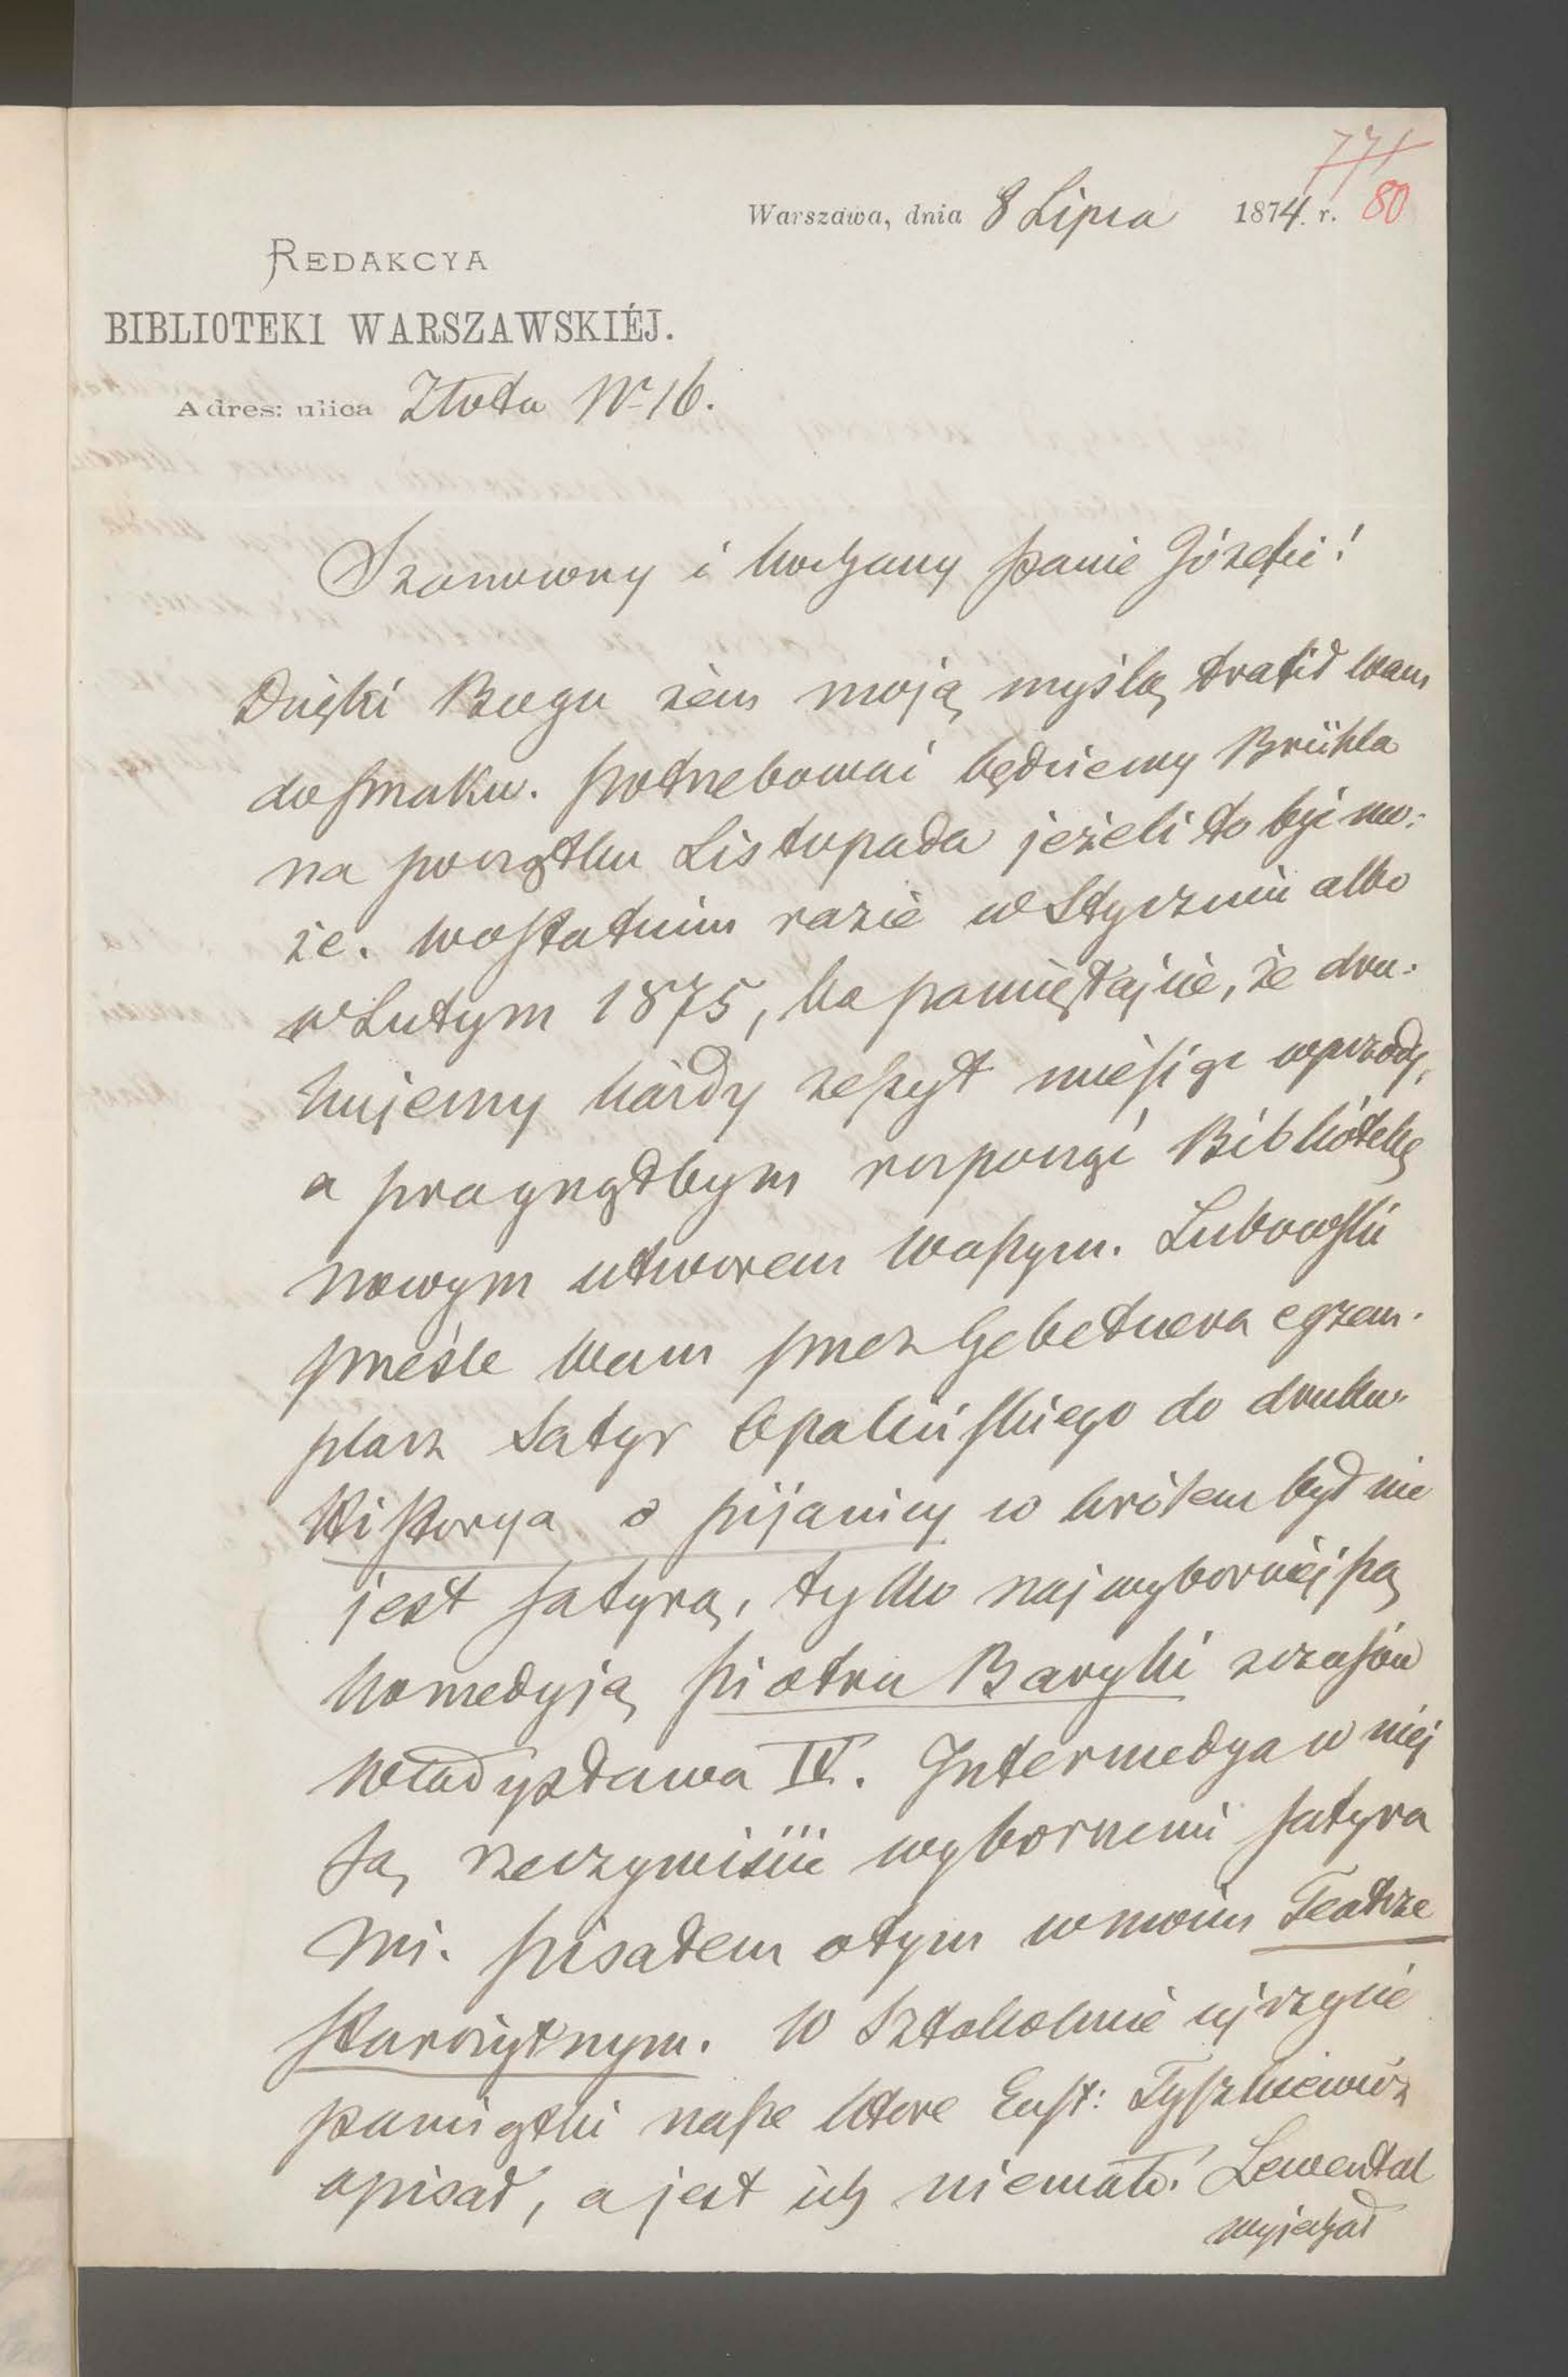 771
Warszawa, dnia 8 Lipca 1874. r. 80
REDAKCYA
BIBLIOTEKI WARSZAWSKIÉJ.
Adres: ulica Złota Nr 16.
Szanowny i kochany Panie Józefie!
Dzięki Bogu żem moją myślą trafił Wam
do smaku. Potrzebować będziemy Brühla
na początku Listopada jeżeli to być mo:
że. W ostatnim razie w Styczniu albo
w Lutym 1875, bo pamiętajcie, że dru:
kujemy każdy zeszyt miesiąc wprzody,
a pragnąłbym rozpocząć Bibliotekę
nowym utworem Waszym. Lubowski
prześle Wam przez Gebetnera egzem-
plarz Satyr Opalińskiego do druku.
Historya o pijanicy co królem był nie
jest satyrą, tylko najwyborniejszą
komedyją Piotra Baryki z czasów
Władysława IV. Intermedya w niej
są rzeczywiście wybornemi satyra
mi. Pisałem o tym w moim Teatrze
Starożytnym. W Sztokolmie ujrzycie
pamiątki nasze które Eust: Tyszkiewicz
opisał, a jest ich niemało! Lewental
wyjechał